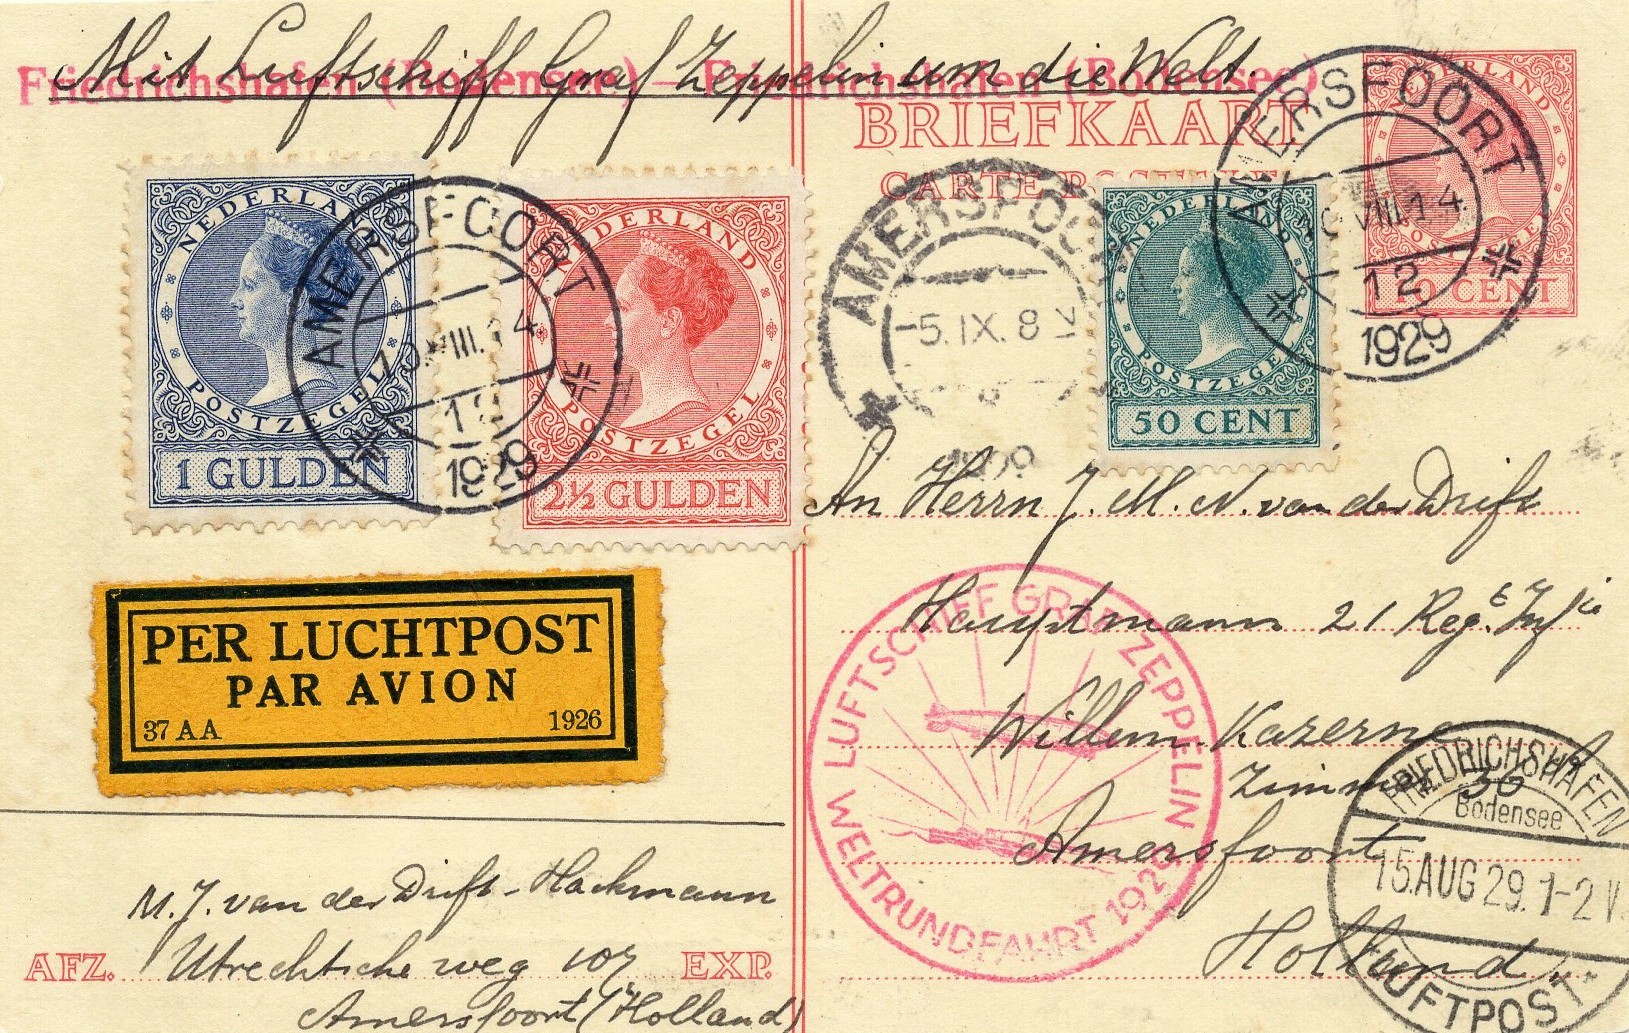 Mit Luftschiff Graf Zeppelin um die Welt.
Friedrichshafen (Bodensee) — Friedrichshafen (Bodensee)
BRIEFKAART
CARTE POSTALE
NEDERLAND
POSTZEGEL
20 CENT
NEDERLAND
POSTZEGEL
1 GULDEN
NEDERLAND
POSTZEGEL
2½ GULDEN
NEDERLAND
POSTZEGEL
50 CENT
AMERSFOORT
10.VIII.14
12
1929
AMERSFOORT
-5.IX.8 V
AMERSFOORT
10.VIII.14
12
1929
PER LUCHTPOST
PAR AVION
37 AA 1926
An Herrn J. M. N. van der Drift
Hauptmann 21 Reg.
Willem Kazerne
Zimmer 30
Amersfoort
Holland.
LUFTSCHIFF GRAF ZEPPELIN
WELTRUNDFAHRT 1929
FRIEDRICHSHAFEN
Bodensee
15.AUG 29. 1-2 V
LUFTPOST
M. J. van der Drift-Hackmann
AFZ. Utrechtsche weg 107 EXP.
Amersfoort (Holland)